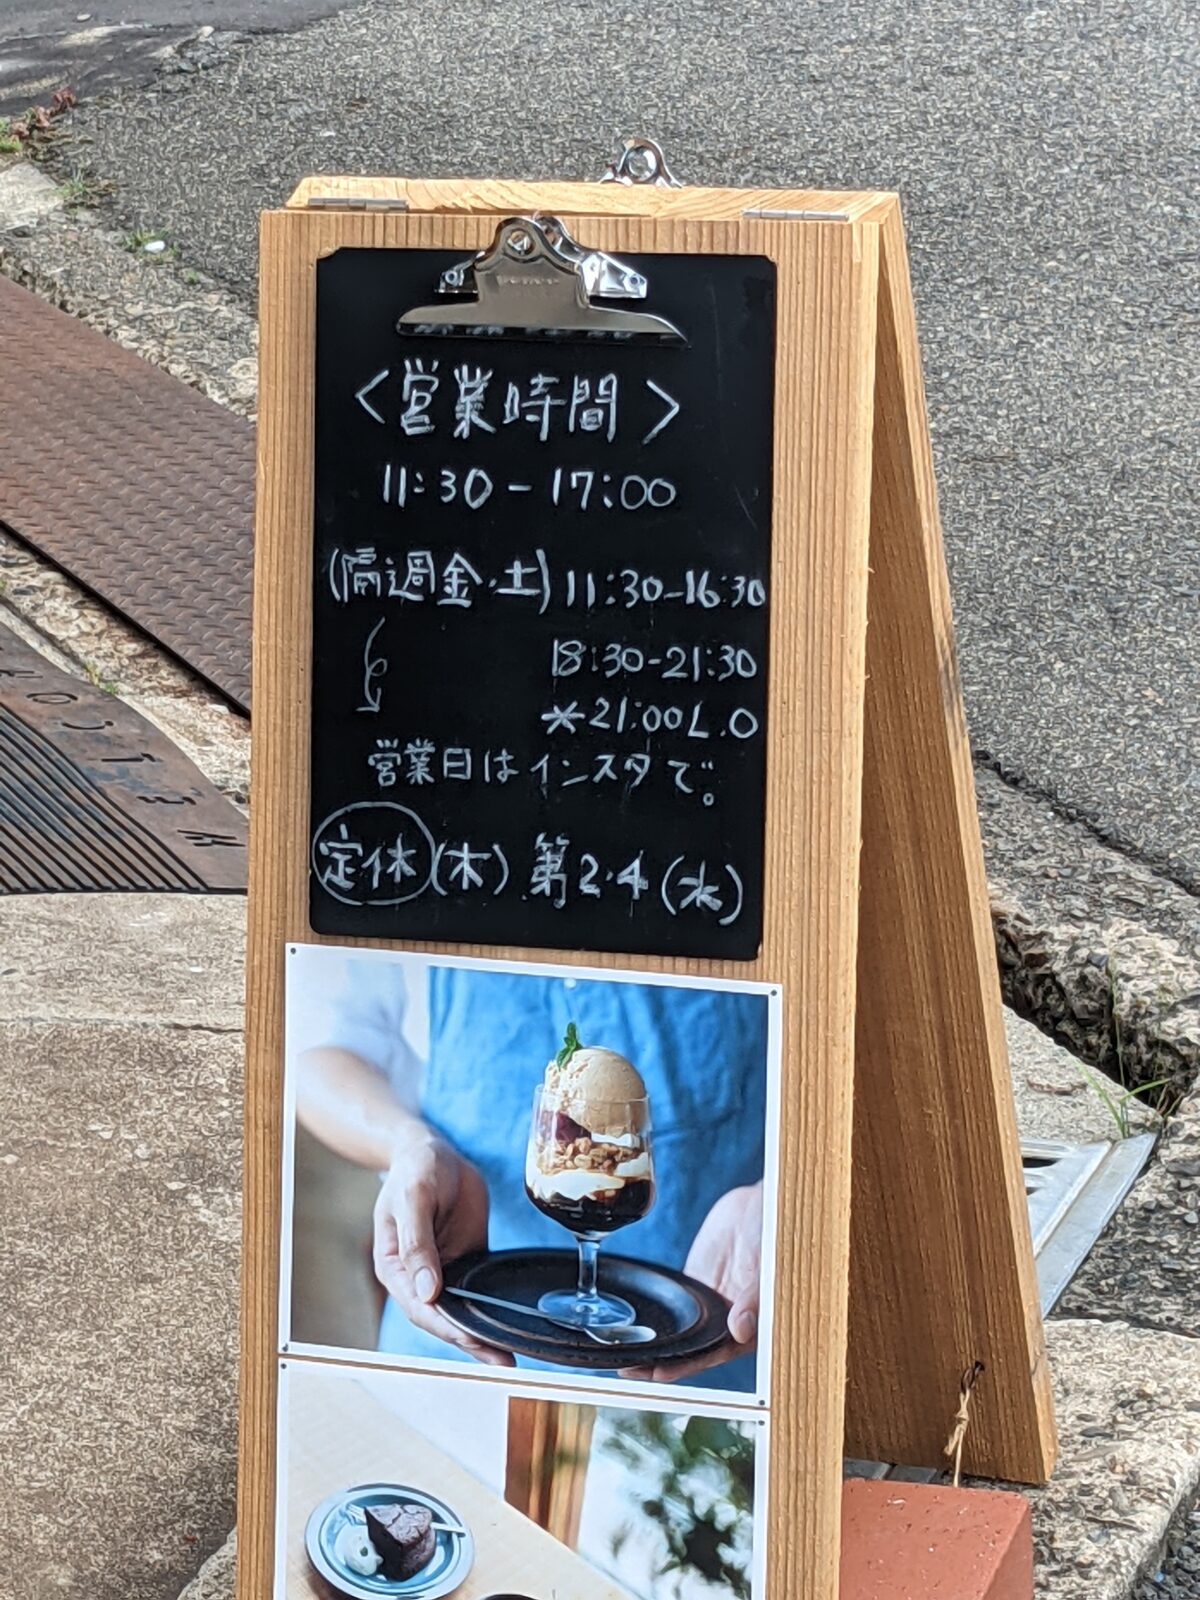 <営業時間>
11:30-17:00
(隔週金・土) 11:30-16:30
18:30-21:30
*21:00 L.O
営業日はインスタで。
定休(木) 第2・4(水)